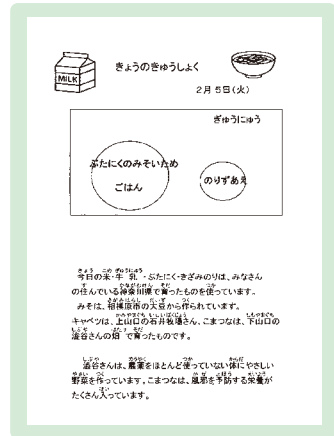 MILK
きょうのきゅうしょく
2月5日(火)
ぎゅうにゅう
ぶたにくのみそいため
ごはん
のりずあえ
今日の米・牛乳・ぶたにく・きざみのりは、みなさん
の住んでいる神奈川県で育ったものを使っています。
みそは、相模原市の大豆から作られています。
キャベツは、上山口の石井牧場さん、こまつなは、下山口の
澁谷さんの畑で育ったものです。
澁谷さんは、農薬をほとんど使っていない体にやさしい
野菜を作っています。こまつなは、風邪を予防する栄養が
たくさん入っています。